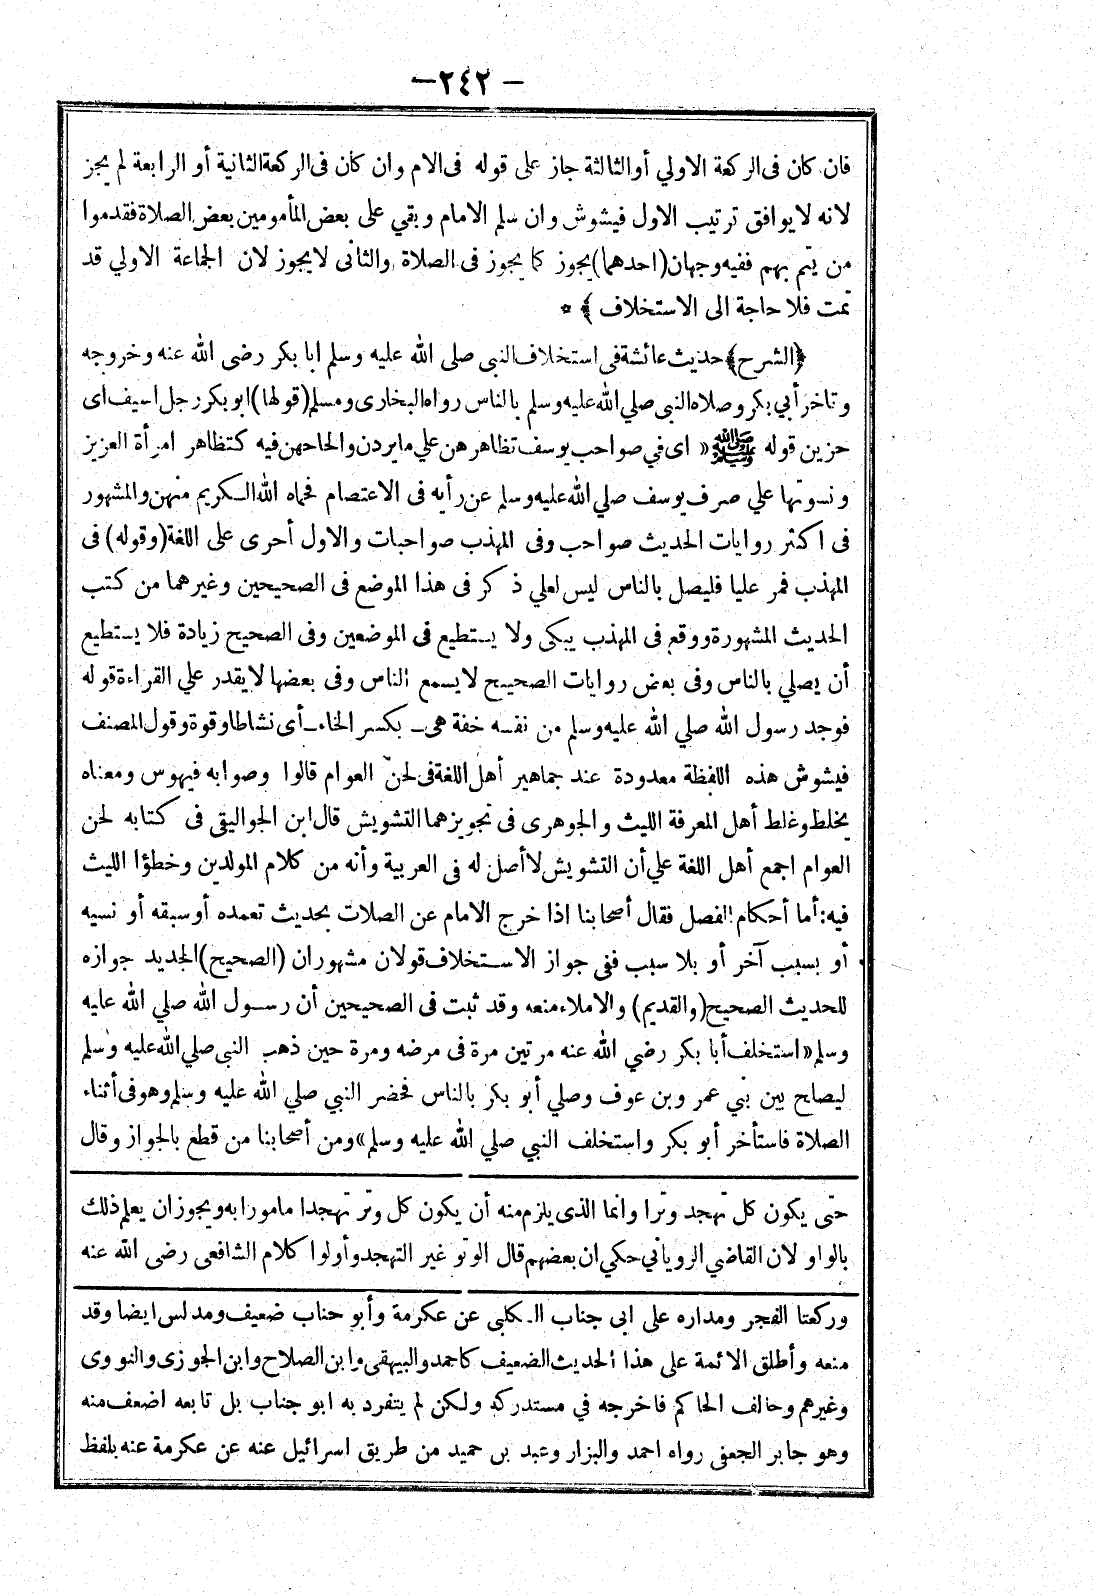 – ٢٤٢ –
فان كان فى الركعة الاولي أو الثالثة جاز على قوله فى الام وان كان فى الركعة الثانية أو الرابعة لم يجز
لانه لا يوافق ترتيب الاول فيشوش وان سلم الامام وبقي على بعض المأمومين بعض الصلاة فقدموا
من يتم بهم ففيه وجهان (احدهما) يجوز كما يجوز فى الصلاة والثانى لا يجوز لان الجماعة الاولي قد
تمت فلا حاجة الى الاستخلاف ﴾ *
﴿الشرح﴾ حديث عائشة فى استخلاف النبى صلى الله عليه وسلم ابا بكر رضى الله عنه وخروجه
وتاخر أبي بكر وصلاه النبى صلي الله عليه وسلم بالناس رواه البخارى ومسلم (قولها) ابو بكر رجل اسيف اى
حزين قوله ﷺ « اى في صواحب يوسف تظاهرهن علي ما يردن والحاحهن فيه كتظاهر امرأة العزيز
ونسوتها علي صرف يوسف صلي الله عليه وسلم عن رأيه فى الاعتصام فحماه الله الكريم منهن والمشهور
فى اكثر روايات الحديث صواحب وفى المهذب صواحبات والاول أحرى على اللغة (وقوله) فى
المهذب فمر عليا فليصل بالناس ليس لعلي ذكر فى هذا الموضع فى الصحيحين وغيرهما من كتب
الحديث المشهورة ووقع فى المهذب يبكى ولا يستطيع فى الموضعين وفى الصحيح زيادة فلا يستطيع
أن يصلي بالناس وفى بعض روايات الصحيح لا يسمع الناس وفى بعضها لا يقدر علي القراءة قوله
فوجد رسول الله صلي الله عليه وسلم من نفسه خفة هى ـ بكسر الخاء ـ أى نشاطا وقوة وقول المصنف
فيشوش هذه اللفظة معدودة عند جماهير أهل اللغة فى لحن العوام قالوا وصوابه فيهوس ومعناه
يخلط وغلط أهل المعرفة الليث والجوهرى فى تجويزهما التشويش قال ابن الجواليقى فى كتابه لحن
العوام اجمع أهل اللغة علي أن التشويش لا أصل له فى العربية وأنه من كلام المولدين وخطؤا الليث
فيه: أما أحكام الفصل فقال أصحابنا اذا خرج الامام عن الصلات بحديث تعمده أو سبقه أو نسيه
أو بسبب آخر أو بلا سبب ففى جواز الاستخلاف قولان مشهوران (الصحيح) الجديد جوازه
للحديث الصحيح (والقديم) والاملاء منعه وقد ثبت فى الصحيحين أن رسول الله صلي الله عليه
وسلم « استخلف أبا بكر رضي الله عنه مرتين مرة فى مرضه ومرة حين ذهب النبى صلي الله عليه وسلم
ليصلح بين بني عمر وبن عوف وصلي أبو بكر بالناس فحضر النبي صلي الله عليه وسلم وهو فى أثناء
الصلاة فاستأخر أبو بكر واستخلف النبي صلي الله عليه وسلم » ومن أصحابنا من قطع بالجواز وقال
حتى يكون كل تهجد وترا وانما الذى يلزم منه أن يكون كل وتر تهجدا مامورا به ويجوز ان يعلم ذلك
بالواو لان القاضي الرويانى حكي ان بعضهم قال الوتو غير التهجد وأولوا كلام الشافعى رضى الله عنه
وركعتا الفجر ومداره على ابى جناب الكلبى عن عكرمة وأبو حناب ضعيف ومدلس ايضا وقد
منعه وأطلق الائمة على هذا الحديث الضعيف كاحمد والبيهقى وابن الصلاح وابن الجوزى والنووى
وغيرهم وحالف الحاكم فاخرجه في مستدركه ولكن لم يتفرد به ابو جناب بل تابعه اضعف منه
وهو جابر الجعفى رواه احمد والبزار وعبد بن حميد من طريق اسرائيل عنه عن عكرمة عنه بلفظ